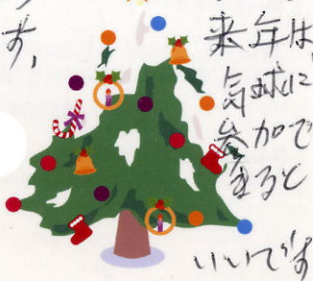 来年は
気球に
参加で
きると
いいです
す。